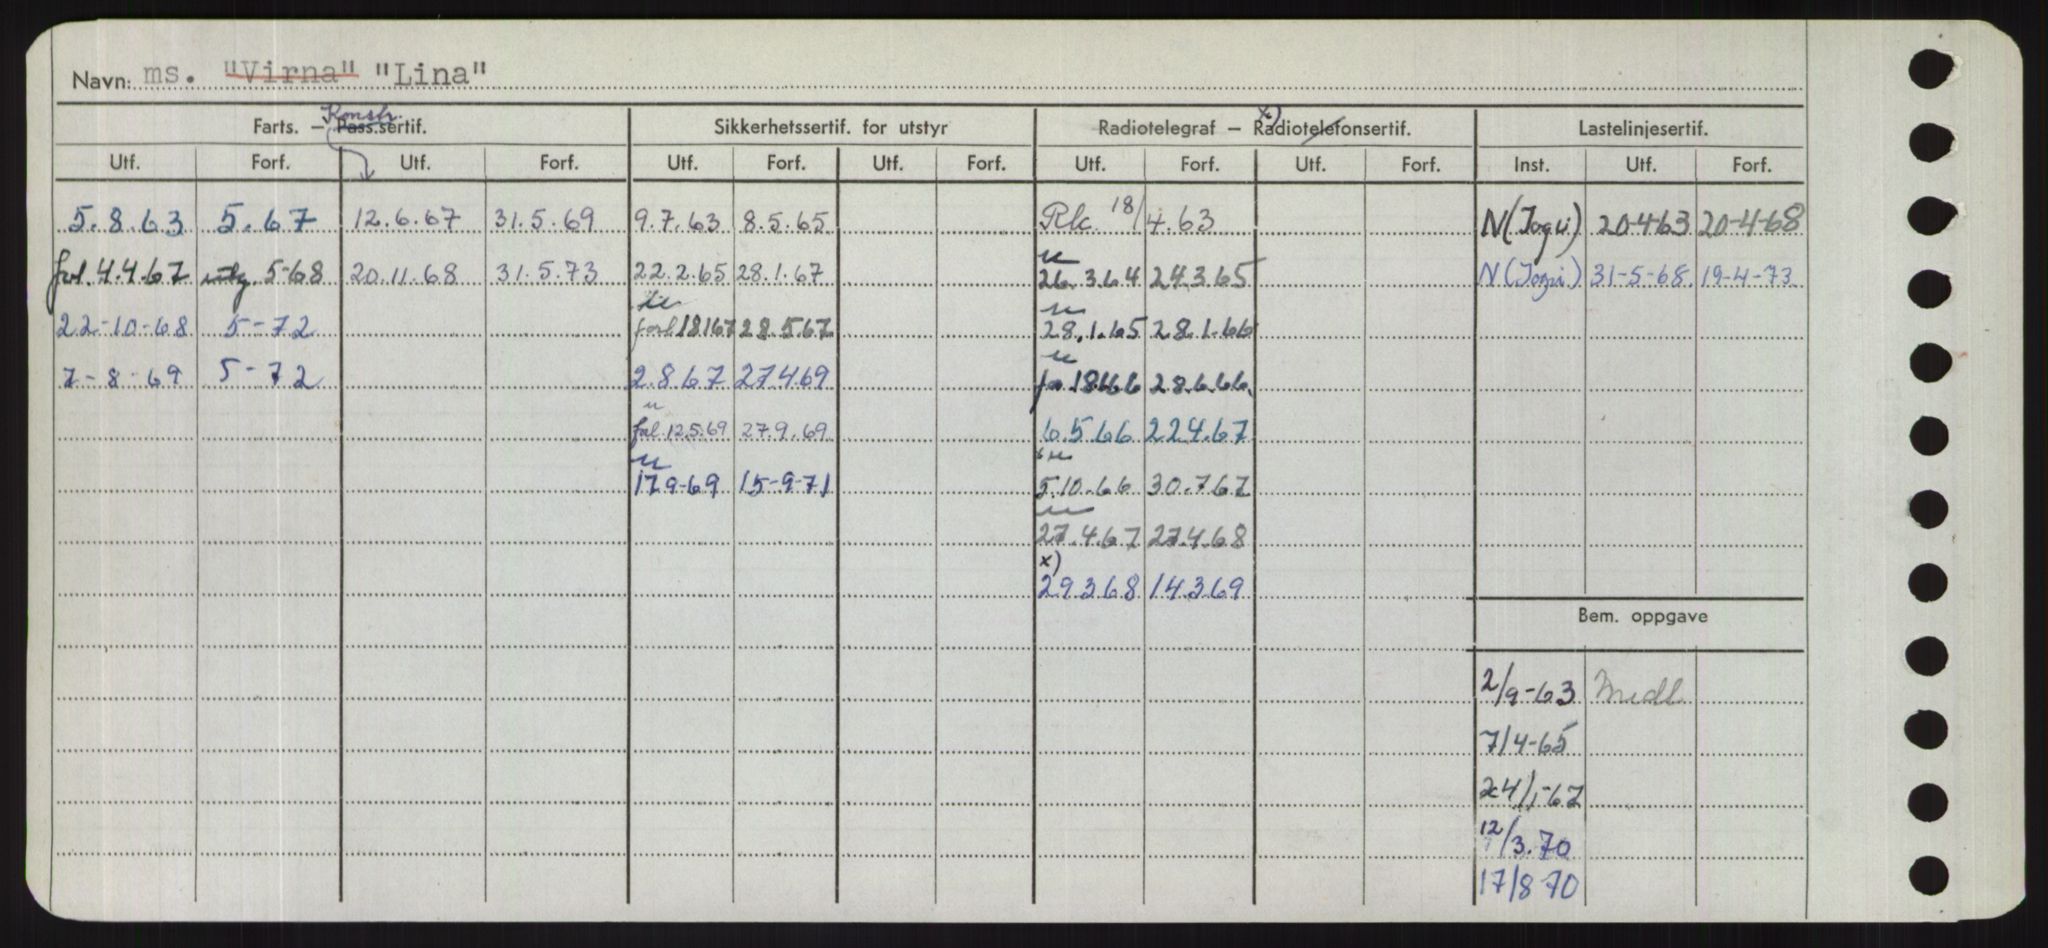 Navn: ms. "Virna" "Lina"
Konstr.
Farts. – Pass.sertif. Sikkerhetssertif. for utstyr Radiotelegraf – Radiotelefonsertif. x) Lastelinjesertif.
Utf. Forf. Utf. Forf. Utf. Forf. Utf. Forf. Utf. Forf. Utf. Forf. Inst. Utf. Forf.
5.8.63 5.67 12.6.67 31.5.69 9.7.63 8.5.65 Rk. 18/4.63 N (Jogu) 20-4-63 20-4-68
forl. 4.4.67 utg. 5-68 20.11.68 31.5.73 22.2.65 28.1.67 26.3.64 24.3.65 N (Jogu) 31-5-68. 19-4-73
22-10-68 5-72 forl. 18167 28.5.67 28.1.65 28.1.66
7-8-69 5-72 2.8.67 27.4.69 28.6.66.
12.5.69 27.9.69 6.5.66 22.4.67
17.9-69 15-9-71 5.10.66 30.7.67
27.4.67 27.4.68
x)
29.3.68 14.3.69
Bem. oppgave
2/9-63 Medl
7/4-65
24/1-67
12/3.70
17/8 70